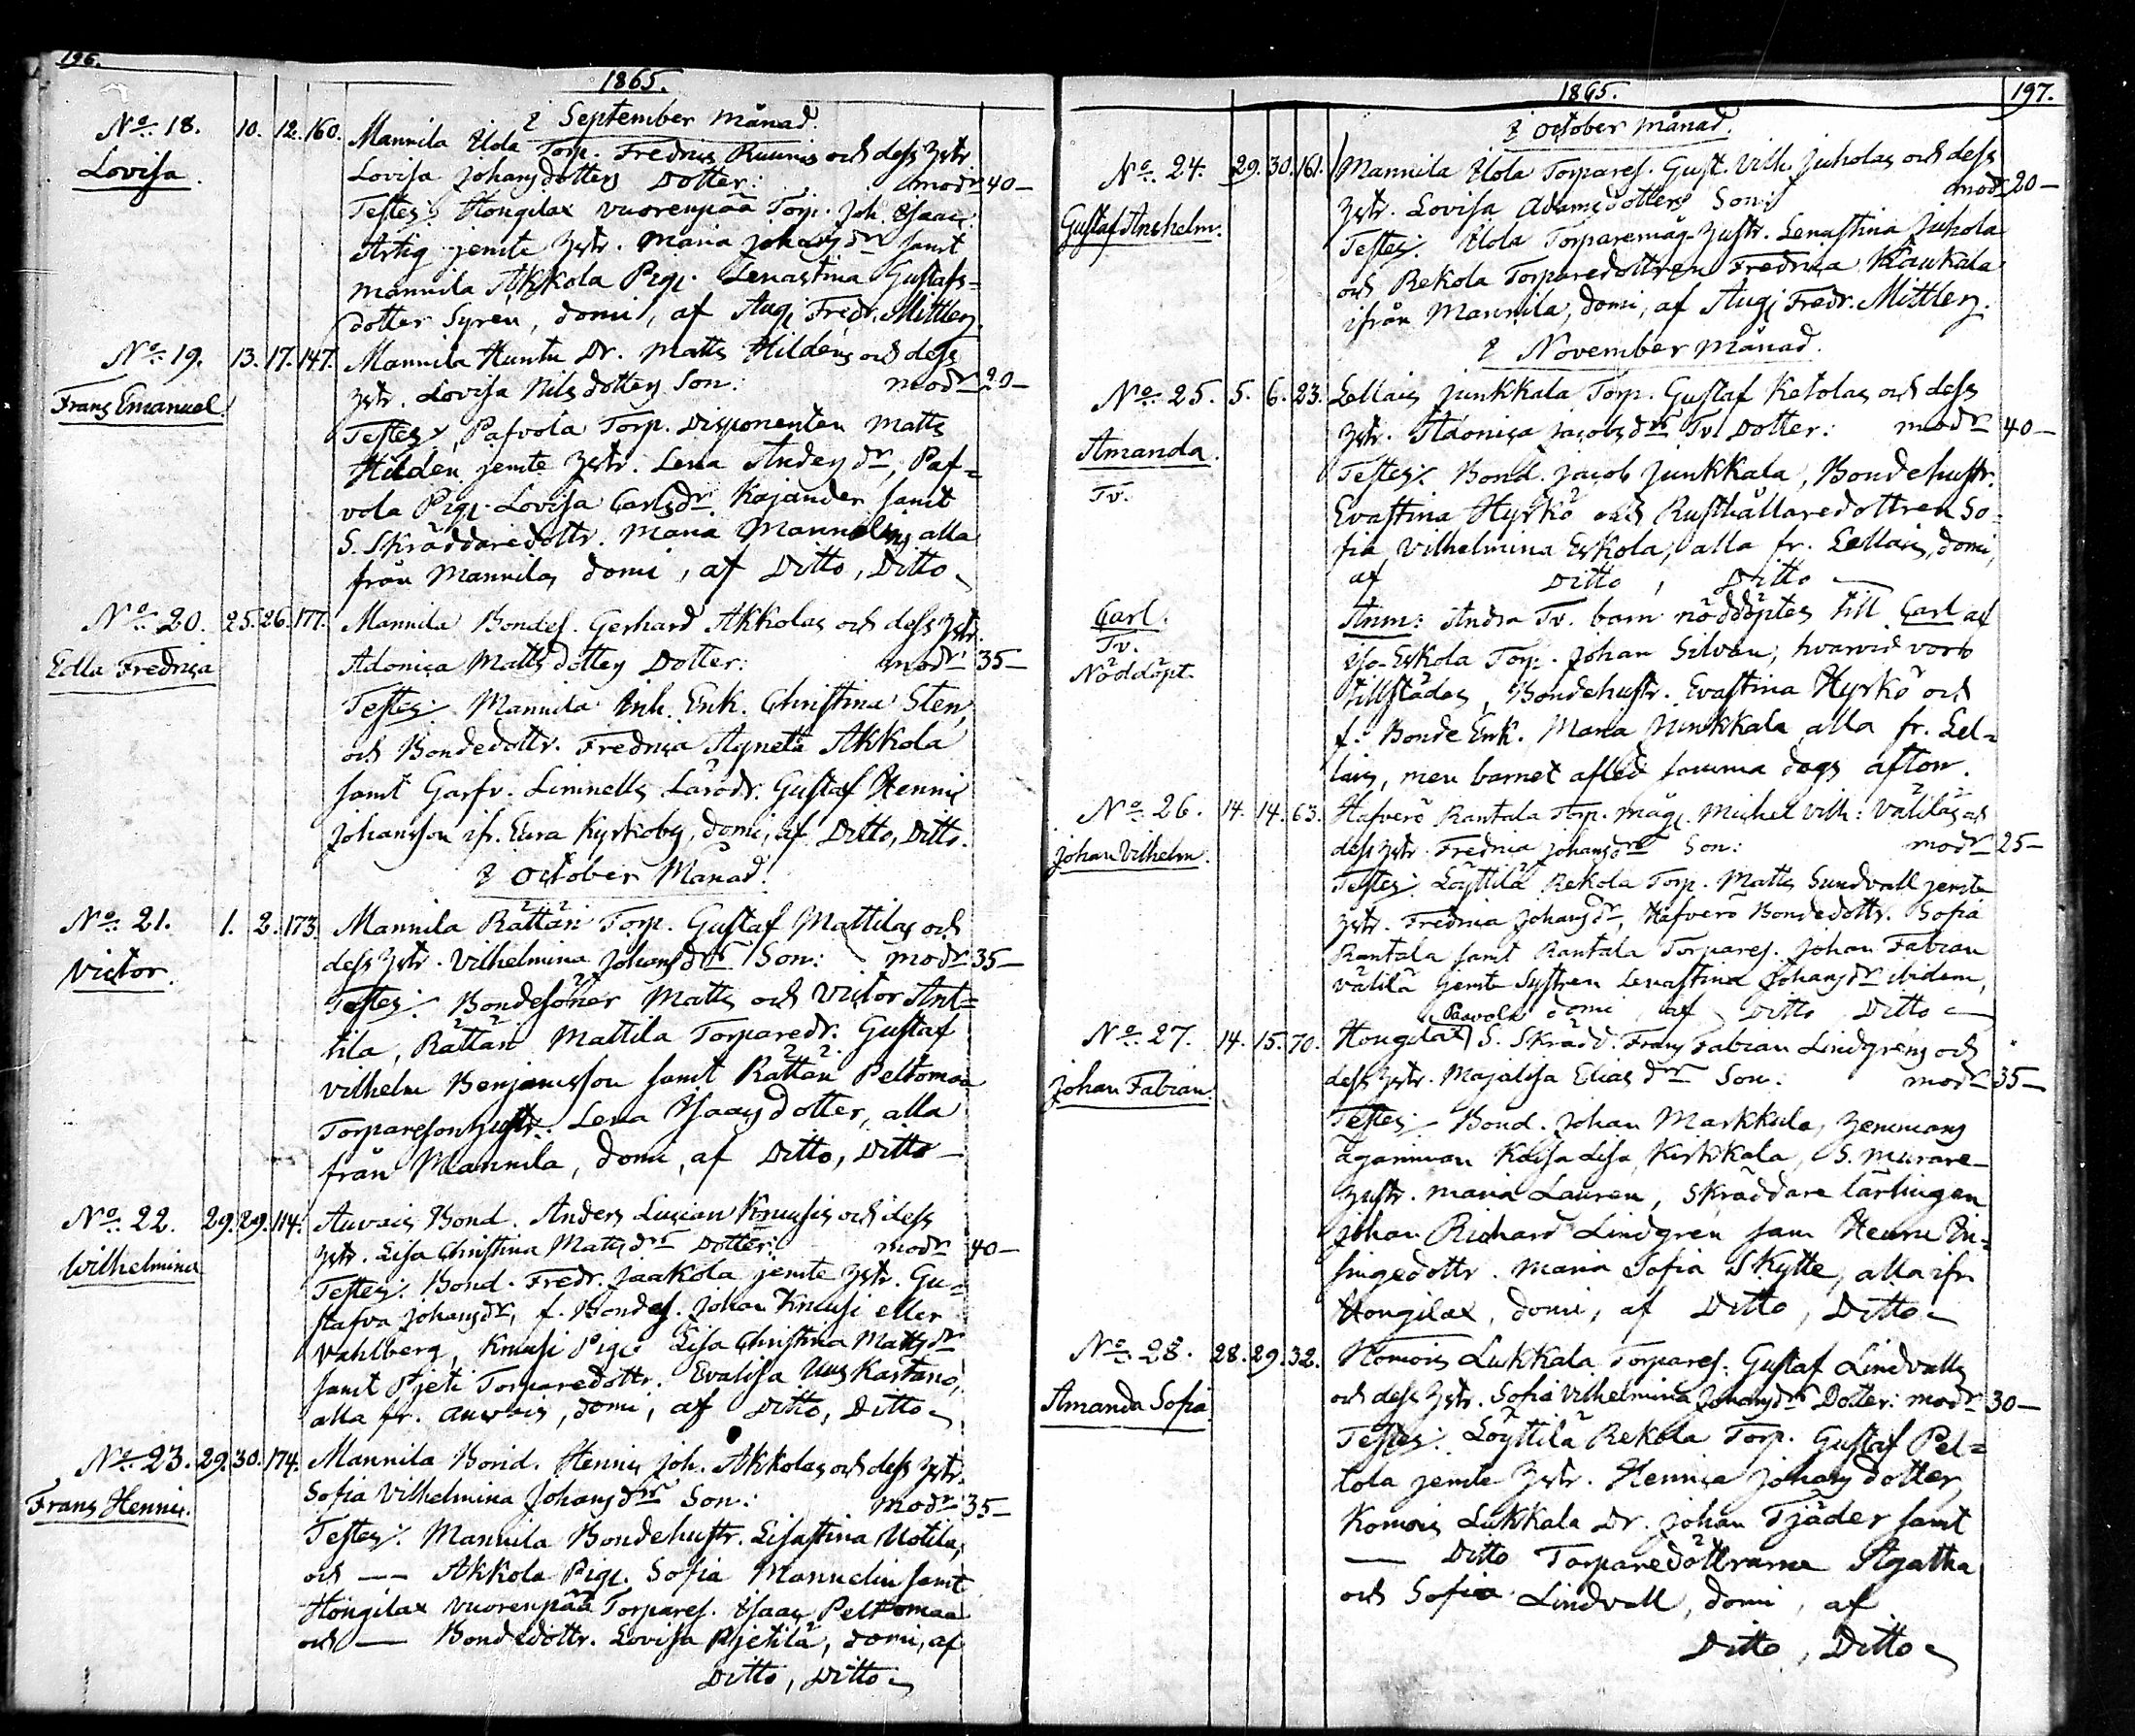 196.
1865.
I September månad.
No. 18. 10. 12. 160. Mannila Uola Torp. Fredrics Ruunis och dess hstr
Lovisa. Lovisa Johansdotters Dotter: modr 40—
Testes: Hongilax Vuorenpää Torp. Joh. Isaac
Artig jemte hstr. Maria Johansdr samt
Mannila Akkola Pig. Lenastina Gustafs=
dotter Syren, domi, af Aug. Fredr. Mittler.
No. 19. 13. 17. 147. Mannila Huntu Dr. Matts Hildens och dess
Frans Emanuel. hstr. Lovisa Nilsdotters Son: modr 20—
Testes, Pafvola Torp. Disponenten Matts
Hilden jemte hstr. Lena Andersdr, Paf=
vola Pig. Lovisa Carlsdr. Kajander samt
S. Skräddaredottr. Maria Mannelin, alla
från Mannila, domi, af Ditto, Ditto
No. 20. 25. 26. 177. Mannila Bondes. Gerhard Akkolas och dess hstr.
Edla Fredrica Adonica Mattsdotters Dotter: modr 35—
Testes: Mannila Inh. Enk. Christina Sten,
och Bondedottr. Fredrica Agneta Akkola
samt Garfv. Limnells Lärodr. Gustaf Hennic
Johansson ifr. Eura Kyrkoby, domi, af Ditto, Ditto.
I October Månad.
No. 21. 1. 2. 173. Mannila Rättäri Torp. Gustaf Mattilas och
Victor. dess hstr. Vilhelmina Johansdrs Son: modr 35—
Testes: Bondesöner Matts och Victor Ant=
tila, Rättäri Mattila Torparedr. Gustaf
Vilhelm Benjamsson samt Rättäri Peltomaa
Torparesonhustr. Lena Isaacsdotter, alla
från Mannila, domi, af Ditto, Ditto—
No. 22. 29. 29. 114. Auvais Bond. Anders Lucian Knuusis och dess
Wilhelmina hstr. Lisa Christina Mattsdrs Dotter: modr 40—
Testes: Bond. Fredr. Jaakola jemte hstr. Gu=
stafva Johansdr, f. Bondes. Johan Knuusi eller
Vahlberg, Knuusi Pig. Lisa Christina Mattsdr
samt Pjeti Torparedottr. Evalisa Uuskartano,
alla fr. Auvais, domi, af Ditto, Ditto
No. 23. 29. 30. 174. Mannila Bond. Hennic Joh. Akkolas och dess hstr.
Frans Hennic. Sofia Vilhelmina Johansdrs Son: modr 35—
Testes: Mannila Bondehustr. Lisastina Uotila,
och —— Akkola Pig. Sofia Mannelin samt
Hongilax Vuorenpää Torpares. Isaac Peltomaa
och — Bondedottr. Lovisa Pjetilä, domi, af
Ditto, Ditto
1865. 197.
I October månad.
No. 24. 29. 30. 161. Mannila Uola Torpares. Gust. Vilh. Juholas och dess
Gustaf Anshelm. hstr. Lovisa Adamsdotters Son: modr 20—
Testes: Uola Torparemåg. hustr. Lenastina Juhola
och Rekola Torparedottren Fredrica Kaukala
ifrån Mannila, domi, af Aug. Fredr. Mittler.
I November månad.
No. 25. 5. 6. 23. Lellais Junkkala Torp. Gustaf Ketolas och dess
Amanda. hstr. Adonica Jacobsdrs Tv. Dotter: modr 40—
Tv. Testes: Bond. Jacob Junkkala, Bondehustr.
Evastina Hyrkö och Rusthållaredottren So=
fia Vilhelmina Eskola, alla fr. Lellais, domi,
af Ditto, Ditto—
Carl. Anm: Andra Tv. barn nöddöptes till Carl af
Tv. Iso-Eskola Torp. Johan Silvan, hvarvid voro
Nöddöpt. tillstädes, Bondehustr. Evastina Hyrkö och
f. Bonde Enk. Maria Junkkala alla fr. Lel=
lais, men barnet afled samma dags afton.
No. 26. 14. 14. 63. Hafverö Rantala Torp. måg. Michel Vilh: Väliläs och
Johan Vilhelm. dess hstr. Fredrica Johansdrs Son: modr 25—
Testes: Löyttilä Rekola Torp. Matts Sundvall jemte
hstr. Fredrica Johansdr, Hafverö Bondedottr. Sofia
Rantala samt Rantala Torpares. Johan Fabian
Välilä jemte Systren Lenastina Johansdr ibidem,
domi, af Ditto Ditto—
Paavola
No. 27. 14. 15. 70. Hongilax S. Skrädd. Frans Fabian Lindgrens och
Johan Fabian. dess hstr. Majalisa Eliasdrs Son: modr 35—
Testes: Bond. Johan Markkula, hemmans
ägarinnan Kaisa Lisa Kirkkala, S. Murare
hustr. Maria Lauren, Skräddare lärlingen
Johan Richard Lindgren samt Henru In=
hingedottr. Maria Sofia Skytte, alla ifr.
Hongilax, domi, af Ditto, Ditto
No. 28. 28. 29. 32. Komois Lukkala Torpares. Gustaf Lindvalls
Amanda Sofia. och dess hstr. Sofia Vilhelmina Johansdrs Dotter: modr 30—
Testes: Löyttilä Rekola Torp. Gustaf Pel=
tola jemte hstr. Hennica Johansdotter,
Komois Lukkala Dr. Johan Tjäder samt
— Ditto Torparedöttrarna Agatha
och Sofia Lindvall, domi, af
Ditto, Ditto